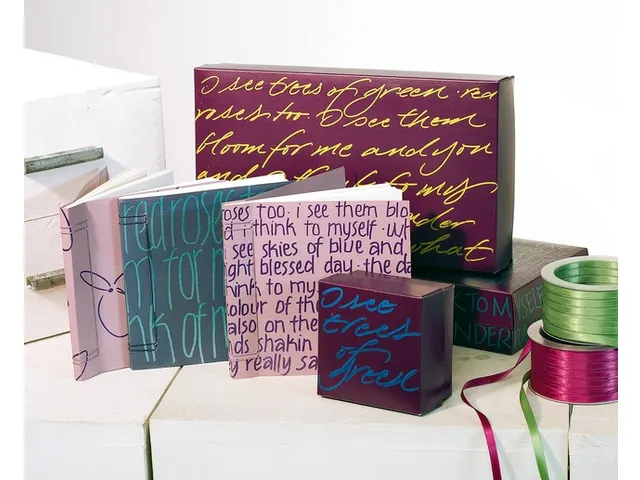 I see trees of green · red
roses too. I see them
bloom for me and you
and
to my
what
red rose
m for m
nk of m
oses too. i see them blo
d i think to myself. w
see skies of blue and
ght blessed day. the da
hink to my
colour of th
also on the
nds shakin
y really sa
I see
trees
of
green
K TO MYSELF
NDERF